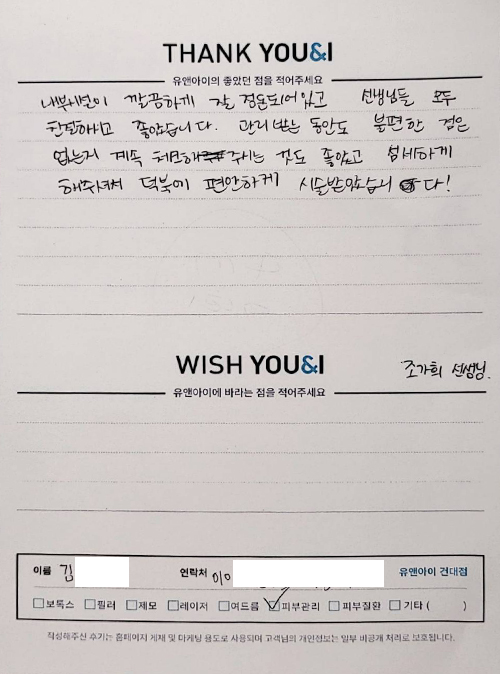 THANK YOU&I
유앤아이의 좋았던 점을 적어주세요
내부시설이 깔끔하게 잘 정돈되어있고 선생님들 모두
친절하시고 좋았습니다. 관리 받는 동안도 불편한 점은
없는지 계속 체크해 주시는 것도 좋았고 섬세하게
해주셔서 덕분에 편안하게 시술받았습니다!
WISH YOU&I
조가희 선생님.
유앤아이에 바라는 점을 적어주세요
이름 김 연락처 010 유앤아이 건대점
보톡스 필러 제모 레이저 여드름 피부관리 피부질환 기타 ( )
작성해주신 후기는 홈페이지 게재 및 마케팅 용도로 사용되며 고객님의 개인정보는 일부 비공개 처리로 보호됩니다.